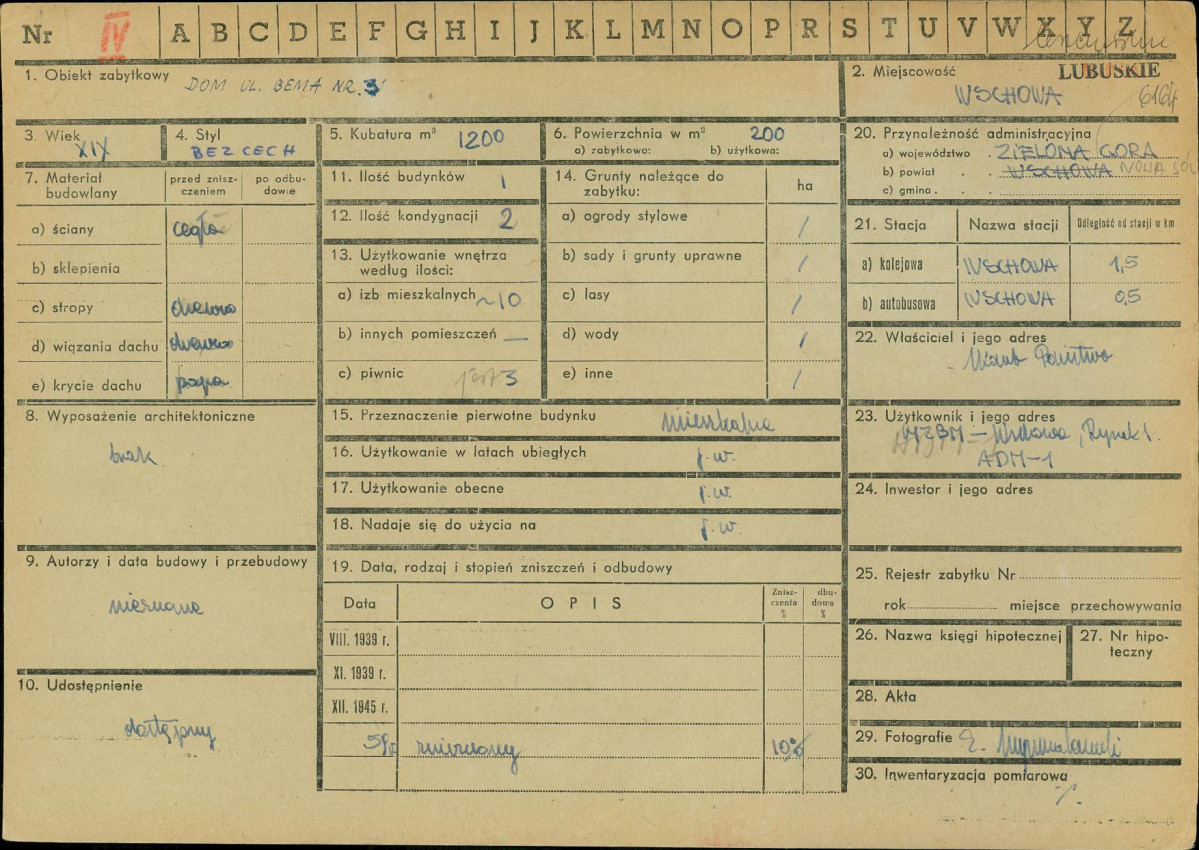 Nr IV A B C D E F G H I J K L M N O P R S T U V W X Y Z
1. Obiekt zabytkowy
DOM UL. BEMA NR. 3
2. Miejscowość LUBUSKIE
WSCHOWA 6164
3. Wiek
XIX
4. Styl
BEZ CECH
5. Kubatura m³ 1200
6. Powierzchnia w m² 200
a) zabytkowa: b) użytkowa:
7. Materiał budowlany
przed zniszczeniem
po odbudowie
a) ściany cegła
b) sklepienia
c) stropy drewno
d) wiązania dachu drewno
e) krycie dachu papa
8. Wyposażenie architektoniczne
brak
9. Autorzy i data budowy i przebudowy
nieznane
10. Udostępnienie
dostępny
11. Ilość budynków 1
12. Ilość kondygnacji 2
13. Użytkowanie wnętrza
według ilości:
a) izb mieszkalnych ~10
b) innych pomieszczeń —
c) piwnic jest 3
14. Grunty należące do
zabytku:
ha
a) ogrody stylowe /
b) sady i grunty uprawne /
c) lasy /
d) wody /
e) inne /
15. Przeznaczenie pierwotne budynku mieszkalne
16. Użytkowanie w latach ubiegłych j.w.
17. Użytkowanie obecne j.w.
18. Nadaje się do użycia na j.w.
19. Data, rodzaj i stopień zniszczeń i odbudowy
Data OPIS Zniszczenia % dbudowa %
VIII. 1939 r.
XI. 1939 r.
XII. 1945 r.
59r. zniszczony 10%
20. Przynależność administracyjna
a) województwo . ZIELONA GÓRA
b) powiat . . WSCHOWA NOWA SÓL
c) gmina . .
21. Stacja Nazwa stacji Odległość od stacji w km
a) kolejowa WSCHOWA 1,5
b) autobusowa WSCHOWA 0,5
22. Właściciel i jego adres
Skarb Państwa
23. Użytkownik i jego adres
MZBM — Wschowa, Rynek 1.
ADM-1
24. Inwestor i jego adres
25. Rejestr zabytku Nr
rok miejsce przechowywania
26. Nazwa księgi hipotecznej
27. Nr hipoteczny
28. Akta
29. Fotografie
30. Inwentaryzacja pomiarowa